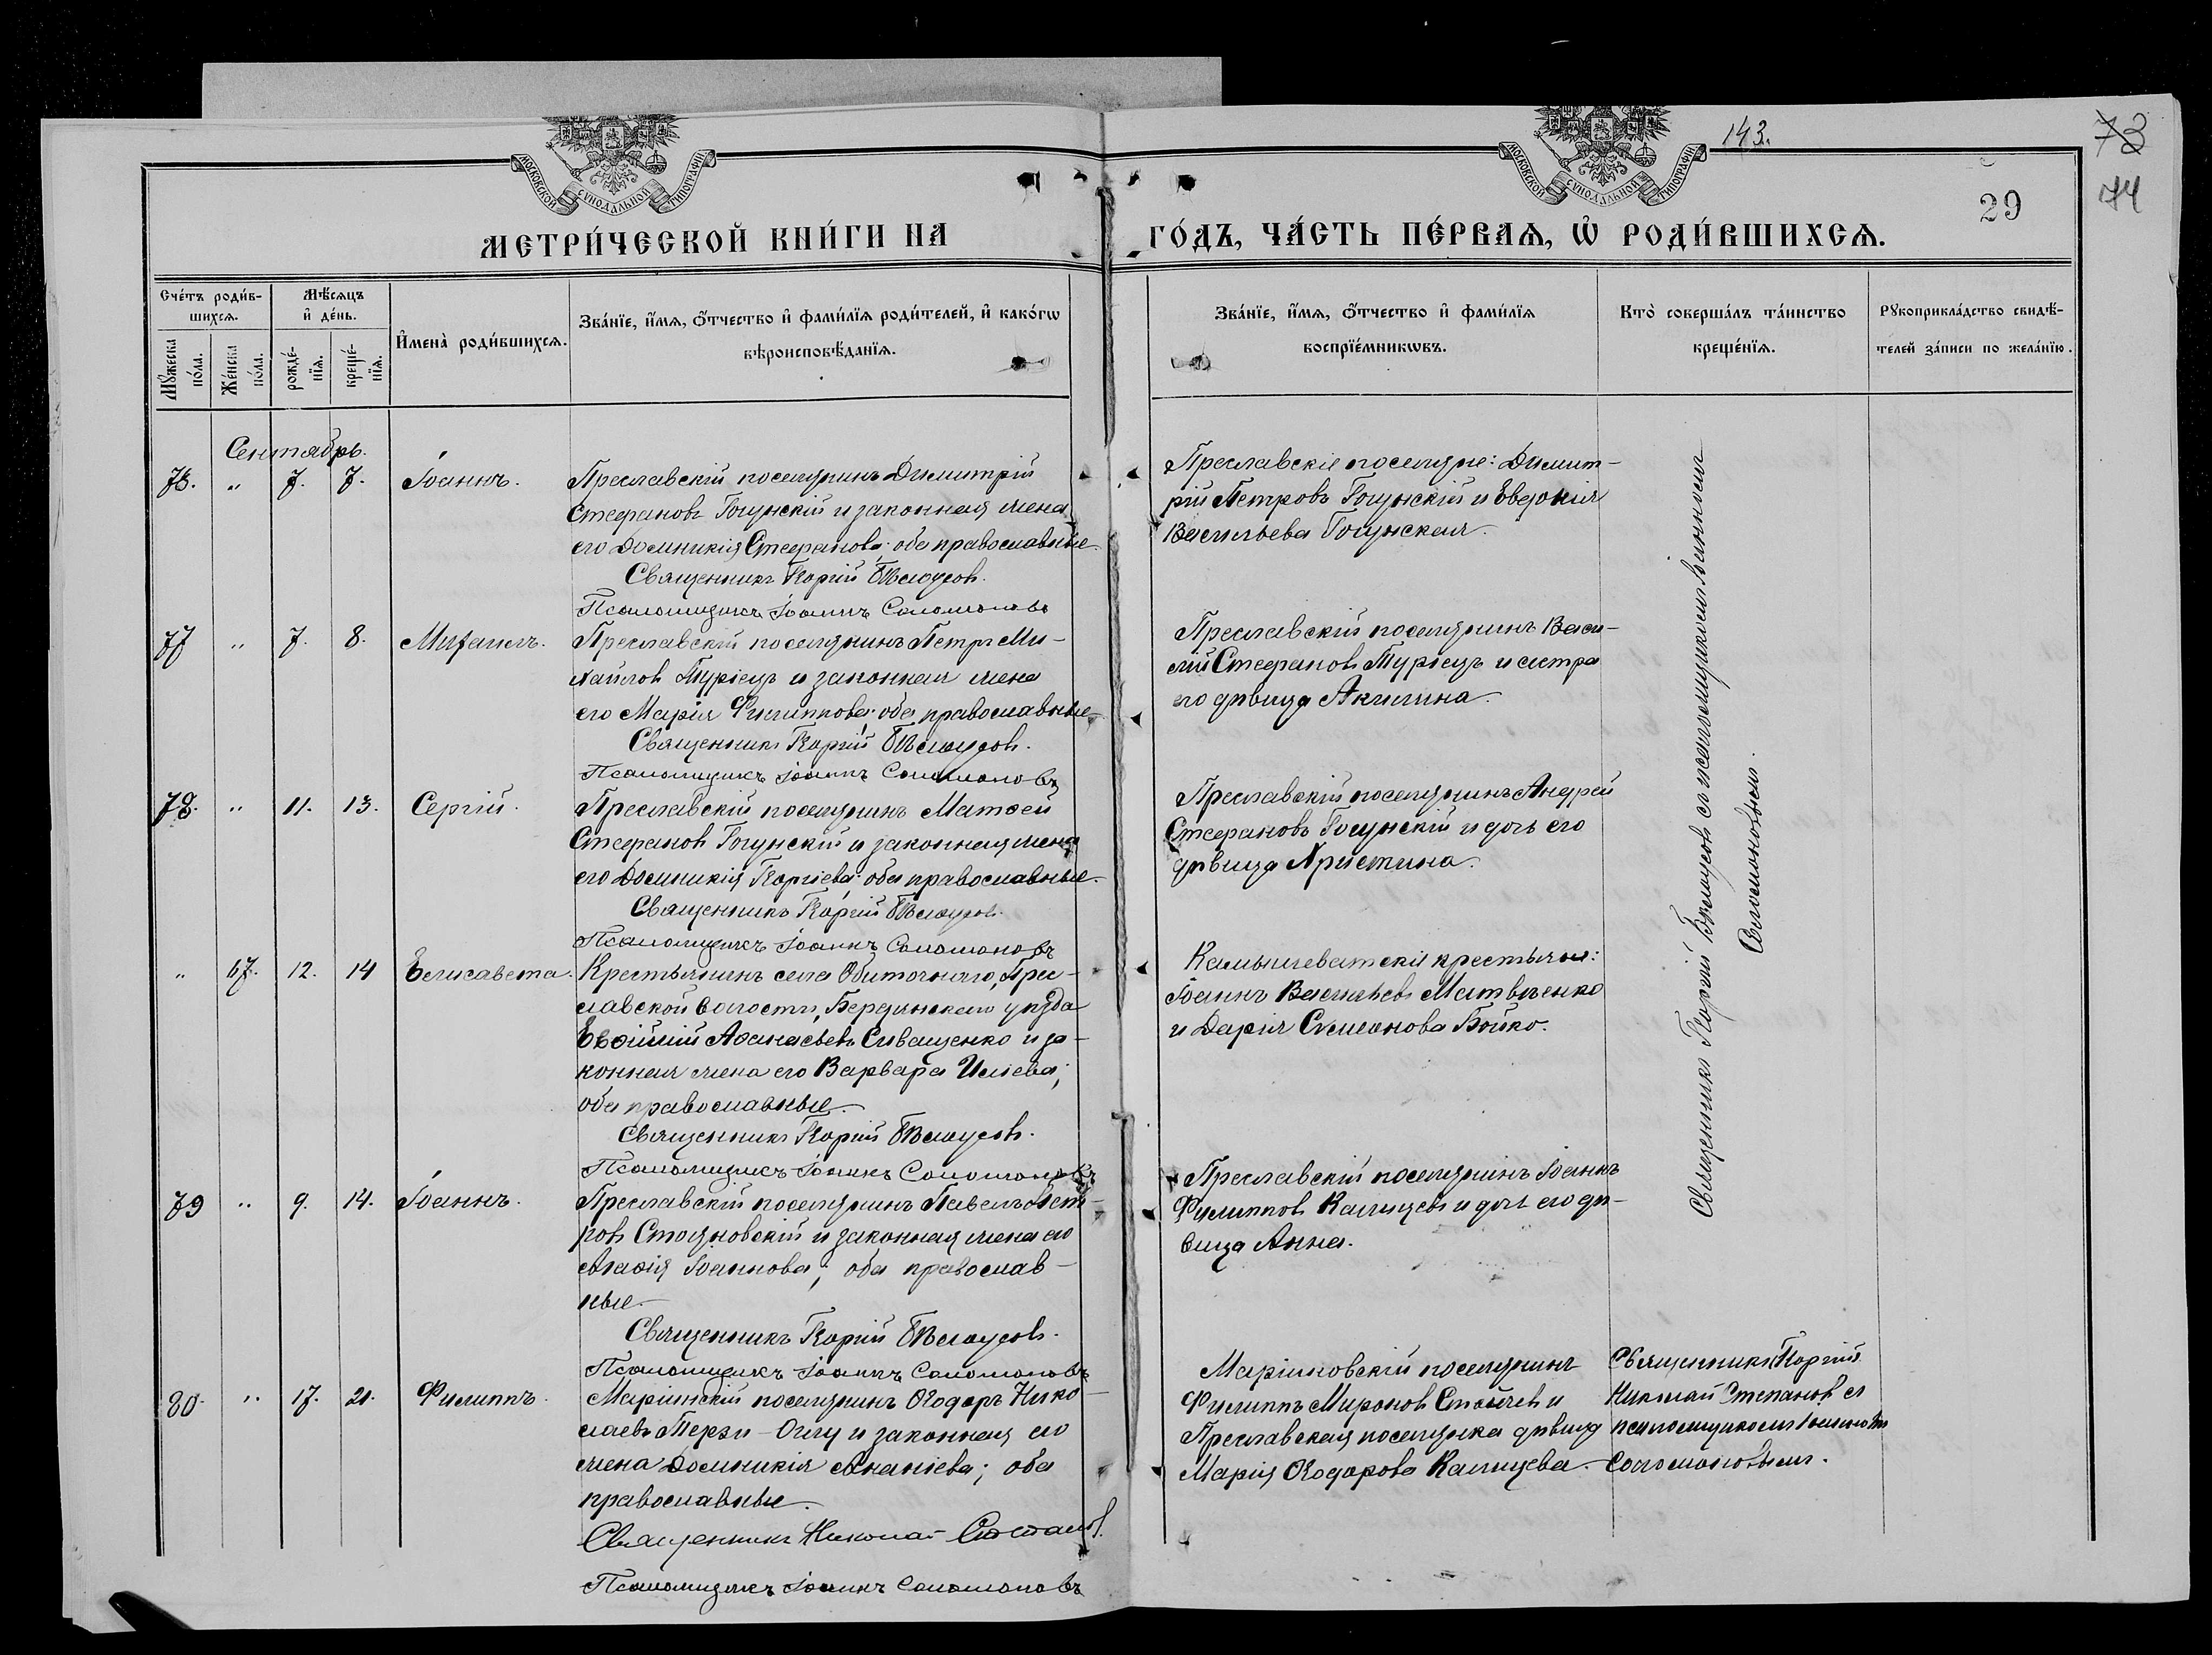 143.
73
74
29
МОСКОВСКОЙ СѴНОДАЛЬНОЙ ТИПОГРАФІИ
МОСКОВСКОЙ СѴНОДАЛЬНОЙ ТИПОГРАФІИ
МЕТРИ́ЧЕСКОЙ КНИ́ГИ НА
ГО́ДЪ, ЧА́СТЬ ПЕ́РВАѦ, Ѡ҆ РОДИ́ВШИХСѦ.
Сче́тъ роди́в-
шихсѧ.
Мѣ́сѧцъ
и҆ де́нь.
Мꙋ́жеска
по́ла.
Же́нска
по́ла.
рожде́-
нїѧ.
креще́-
нїѧ.
И҆мена̀ роди́вшихсѧ.
Зва́нїе, и҆́мѧ, ѻ҆́тчество и҆ фами́лїѧ роди́телей, и҆ како́гѡ
вѣроисповѣ́данїѧ.
Зва́нїе, и҆́мѧ, ѻ҆́тчество и҆ фами́лїѧ
воспрїе́мникѡвъ.
Кто̀ соверша́лъ та́инство
креще́нїѧ.
Рꙋкоприкла́дство свидѣ́-
телей за́писи по жела́нїю.
Сентябрь.
„ 7. 7. Іоаннъ.
Преславскій поселянинъ Димитрій
Стефановъ Гогунскій и законная жена
его Домникія Стефанова; оба православные.
Священникъ Георгій Бѣлоусовъ.
Псаломщикъ Іоаннъ Соломоновъ
Преславскіе поселяне: Димит-
рій Петровъ Гогунскій и Евдокія
Васильева Гогунская.
77 „ 7. 8. Михаилъ.
Преславскій поселянинъ Петръ Ми-
хайловъ Турлецъ и законная жена
его Марія Филиппова; оба православные
Священникъ Георгій Бѣлоусовъ.
Псаломщикъ Іоаннъ Соломоновъ
Преславскій поселянинъ Васи-
лій Стефановъ Турлецъ и сестра
его дѣвица Акилина.
78. „ 11. 13. Сергій.
Преславскій поселянинъ Матѳей
Стефановъ Гогунскій и законная жена
его Домникія Георгіева; оба православные.
Священникъ Георгій Бѣлоусовъ.
Псаломщикъ Іоаннъ Соломоновъ
Преславскій поселянинъ Андрей
Стефановъ Гогунскій и дочь его
дѣвица Христина.
„ 67. 12. 14 Елисавета.
Крестьянинъ села Обиточнаго, Прес-
лавской волости, Бердянскаго уѣзда
Евѳимій Аѳанасьевъ Сиващенко и за-
конная жена его Варвара Иліева;
оба православные.
Священникъ Георгій Бѣлоусовъ.
Псаломщикъ Іоаннъ Соломоновъ
крестьяне:
Іоаннъ Васильевъ Матвѣенко
и Дарія Симонова Бойко.
79 „ 9. 14. Іоаннъ.
Преславскій поселянинъ Павелъ Пет-
ровъ Стояновскій и законная жена его
Агаѳія Іоаннова; оба православ-
ные.
Священникъ Георгій Бѣлоусовъ.
Псаломщикъ Іоаннъ Соломоновъ
Преславскій поселянинъ Іоаннъ
Филипповъ Калчевъ и дочь его дѣ-
вица Анна.
Священникъ Георгій Бѣлоусовъ съ псаломщикомъ Іоанномъ
Соломоновымъ.
80. „ 17. 21. Филиппъ.
Маріинскій поселянинъ Ѳеодоръ Нико-
лаевъ Терзи-Оглу и законная его
жена Домникія Ананіева; оба
православные.
Священникъ Николай Степановъ.
Псаломщикъ Іоаннъ Соломоновъ
Маріиновскій поселянинъ
Филиппъ Мироновъ Стойчевъ и
Преславская поселянка дѣвица
Марія Ѳеодорова Калчева.
Священникъ Георгій
Николай Степановъ съ
псаломщикомъ Іоанномъ
Соломоновымъ.